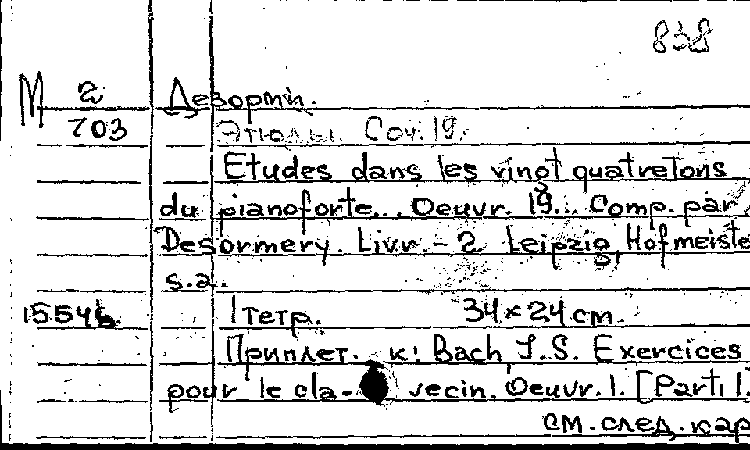 838
М 2 Дезорми.
703 Этюды. Соч. 19.
Etudes dans les vingt quatre tons
du pianoforte... Oeuvr. 19... Comp. par
Desormery. Livr. - 2 Leipzig, Hofmeiste
s.a.
15546 1 тетр. 34×24 см.
Приплет. к: Bach, J.S. Exercices
pour le cla- vecin. Oeuvr. 1. [Part. 1]
см. след. кар